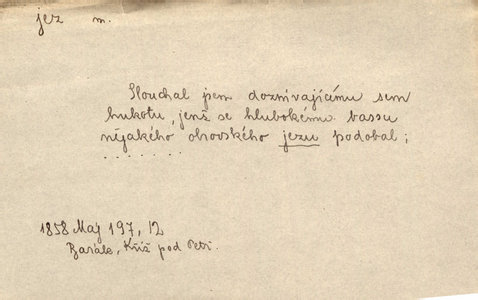 jez m.
Slouchal jsem doznívajícímu sem
hukotu, jenž se hlubokému bassu
nějakého obrovského jezu podobal;
. . . . . . . .
1858 Máj 197, 12
Barák, Kříž pod Petř.